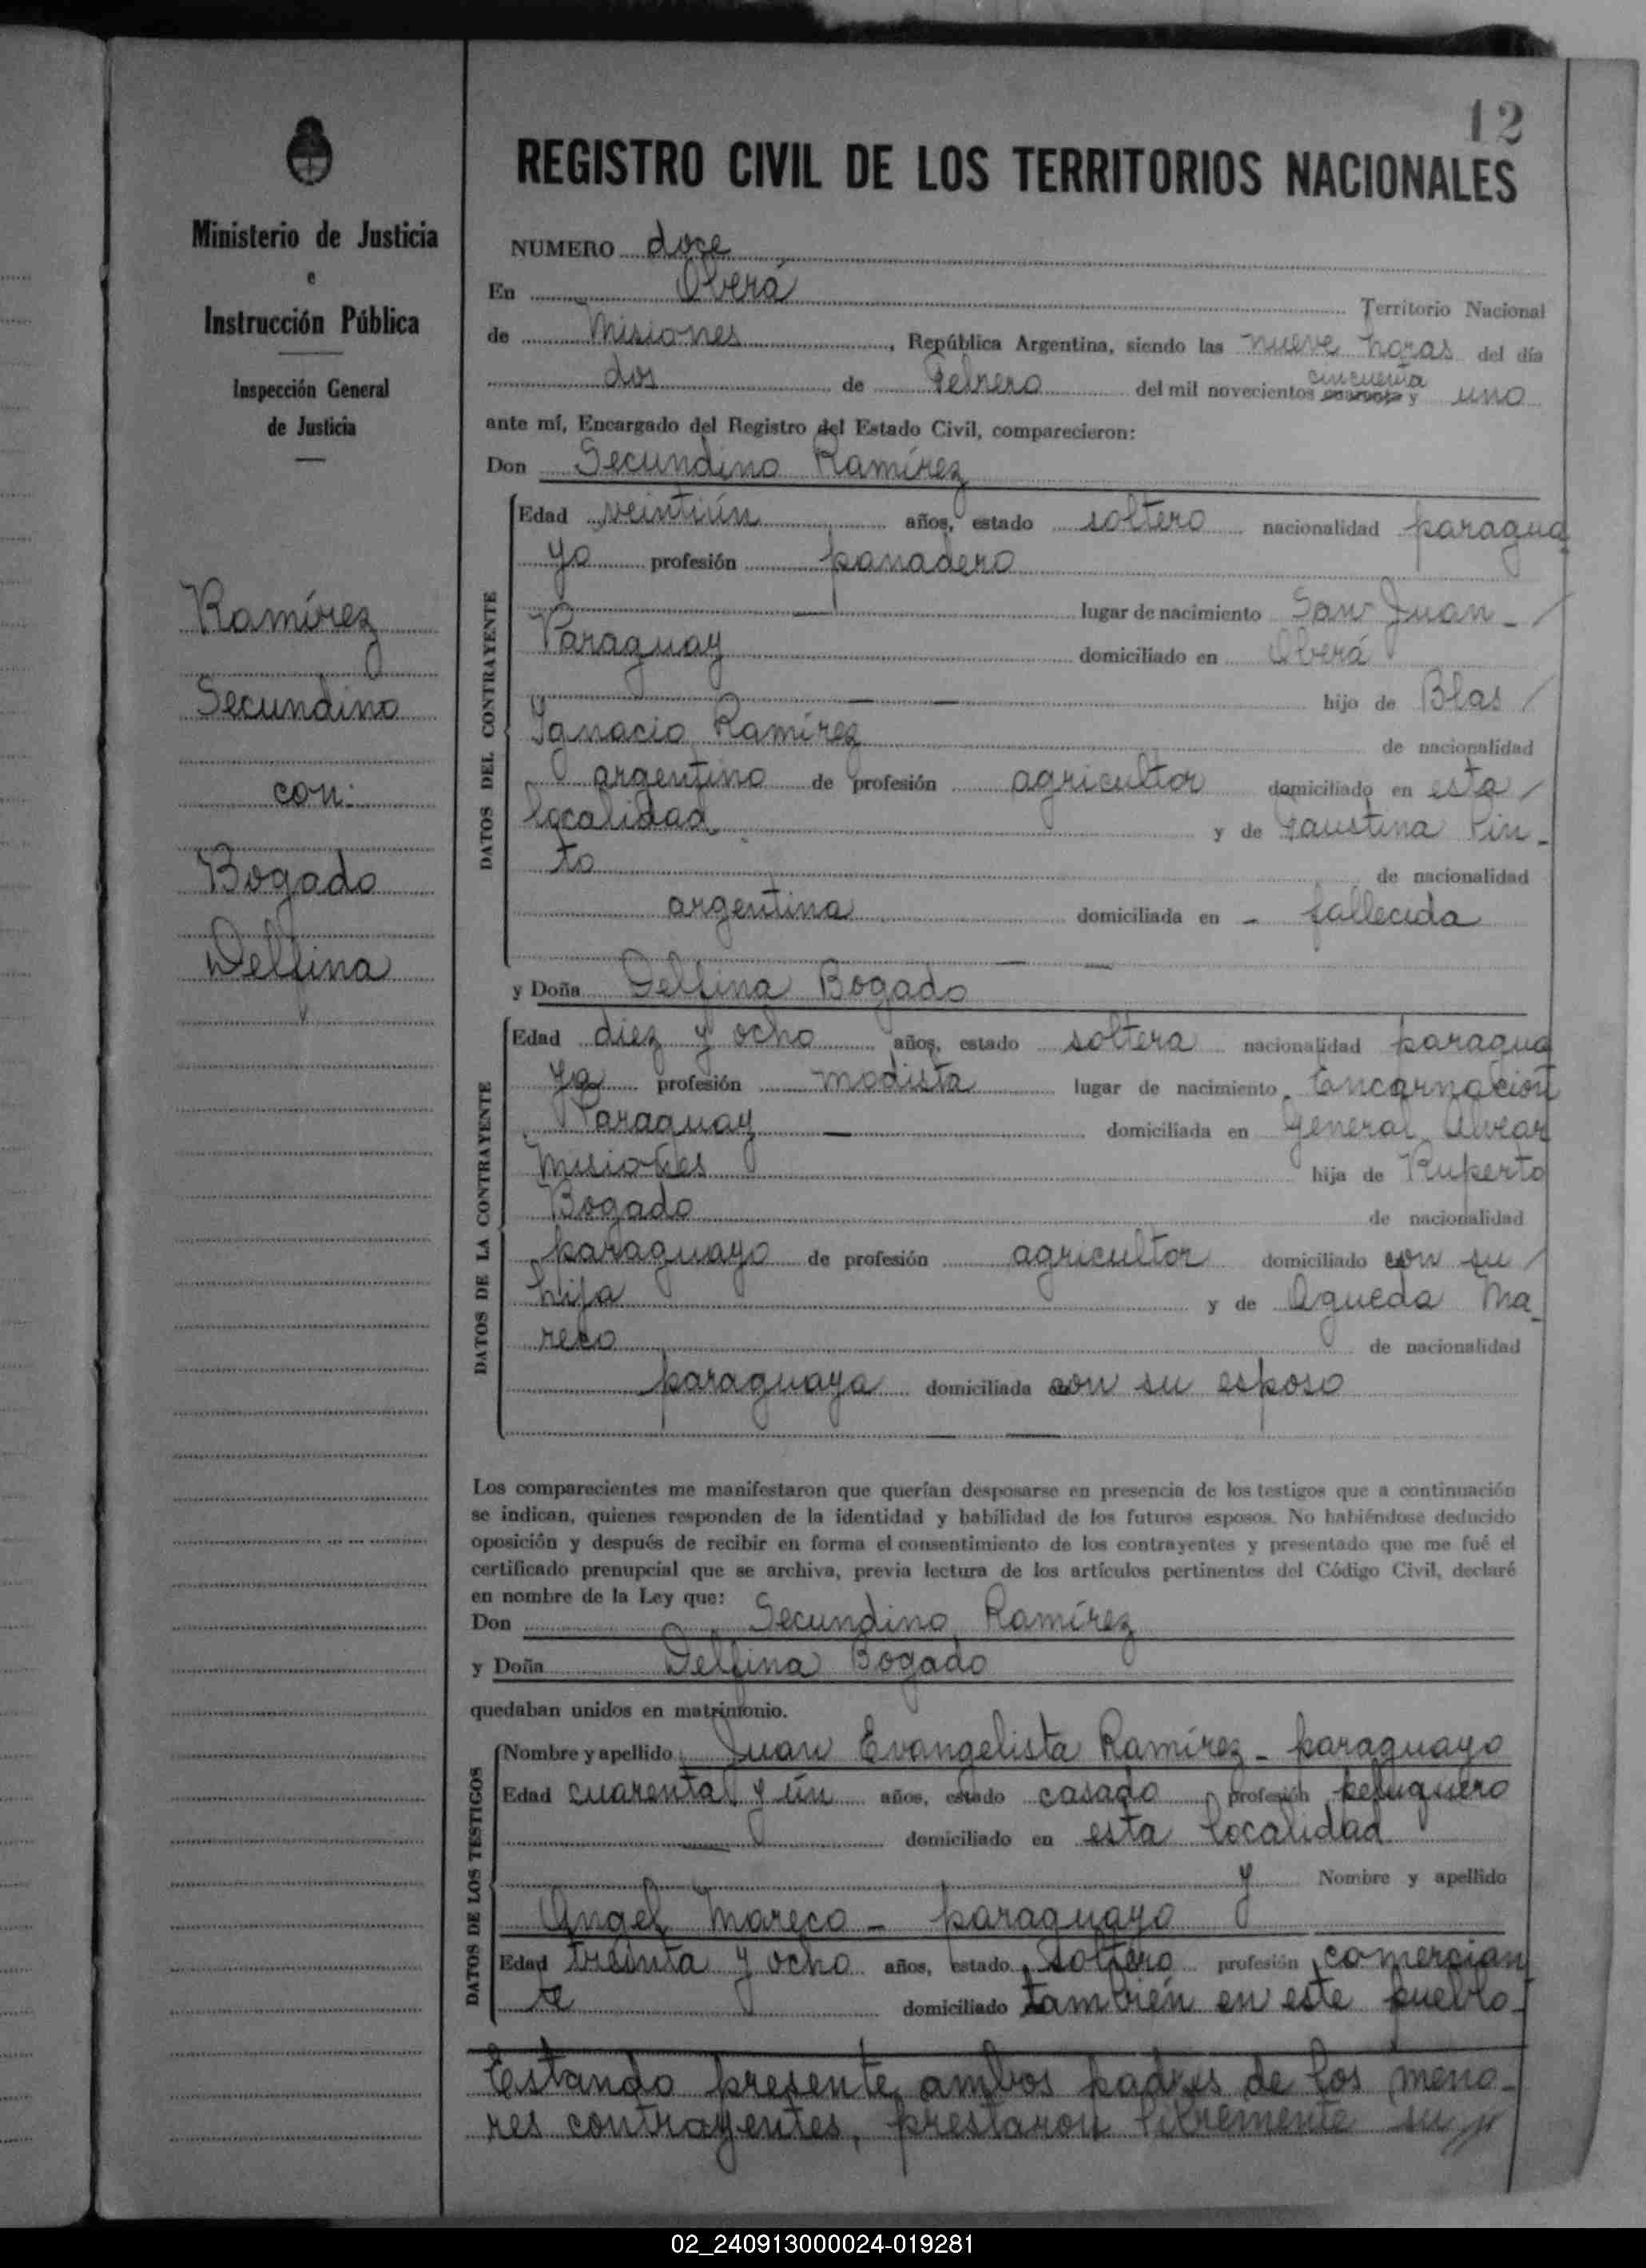 12
REGISTRO CIVIL DE LOS TERRITORIOS NACIONALES
Ministerio de Justicia
e
Instrucción Pública
Inspección General
de Justicia
Ramírez
Secundino
con:
Bogado
Delfina
NUMERO doce
En Oberá Territorio Nacional
de Misiones, República Argentina, siendo las nueve horas del día
dos de Febrero del mil novecientos cincuenta y uno
ante mí, Encargado del Registro del Estado Civil, comparecieron:
Don Secundino Ramírez
DATOS DEL CONTRAYENTE
Edad veintiún años, estado soltero nacionalidad paragua
yo profesión panadero
lugar de nacimiento San Juan -
Paraguay domiciliado en Oberá
hijo de Blas
Ignacio Ramírez de nacionalidad
argentino de profesión agricultor domiciliado en esta
localidad y de Faustina Pin-
to de nacionalidad
argentina domiciliada en - fallecida
y Doña Delfina Bogado
DATOS DE LA CONTRAYENTE
Edad diez y ocho años, estado soltera nacionalidad paragua
ya profesión modista lugar de nacimiento Encarnación
Paraguay domiciliada en General Alvear
Misiones hija de Ruperto
Bogado de nacionalidad
paraguayo de profesión agricultor domiciliado con su
hija y de Agueda Ma-
reco de nacionalidad
paraguaya domiciliada con su esposo
Los comparecientes me manifestaron que querían desposarse en presencia de los testigos que a continuación
se indican, quienes responden de la identidad y habilidad de los futuros esposos. No habiéndose deducido
oposición y después de recibir en forma el consentimiento de los contrayentes y presentado que me fué el
certificado prenupcial que se archiva, previa lectura de los artículos pertinentes del Código Civil, declaré
en nombre de la Ley que:
Don Secundino Ramírez
y Doña Delfina Bogado
quedaban unidos en matrimonio.
DATOS DE LOS TESTIGOS
Nombre y apellido Juan Evangelista Ramírez - paraguayo
Edad cuarenta y ún años, estado casado profesión peluquero
domiciliado en esta localidad
y Nombre y apellido
Angel Mareco - paraguayo
Edad treinta y ocho años, estado soltero profesión comercian
te domiciliado también en este pueblo-
Estando presente ambos padres de los meno-
res contrayentes, prestaron libremente su
02_240913000024-019281